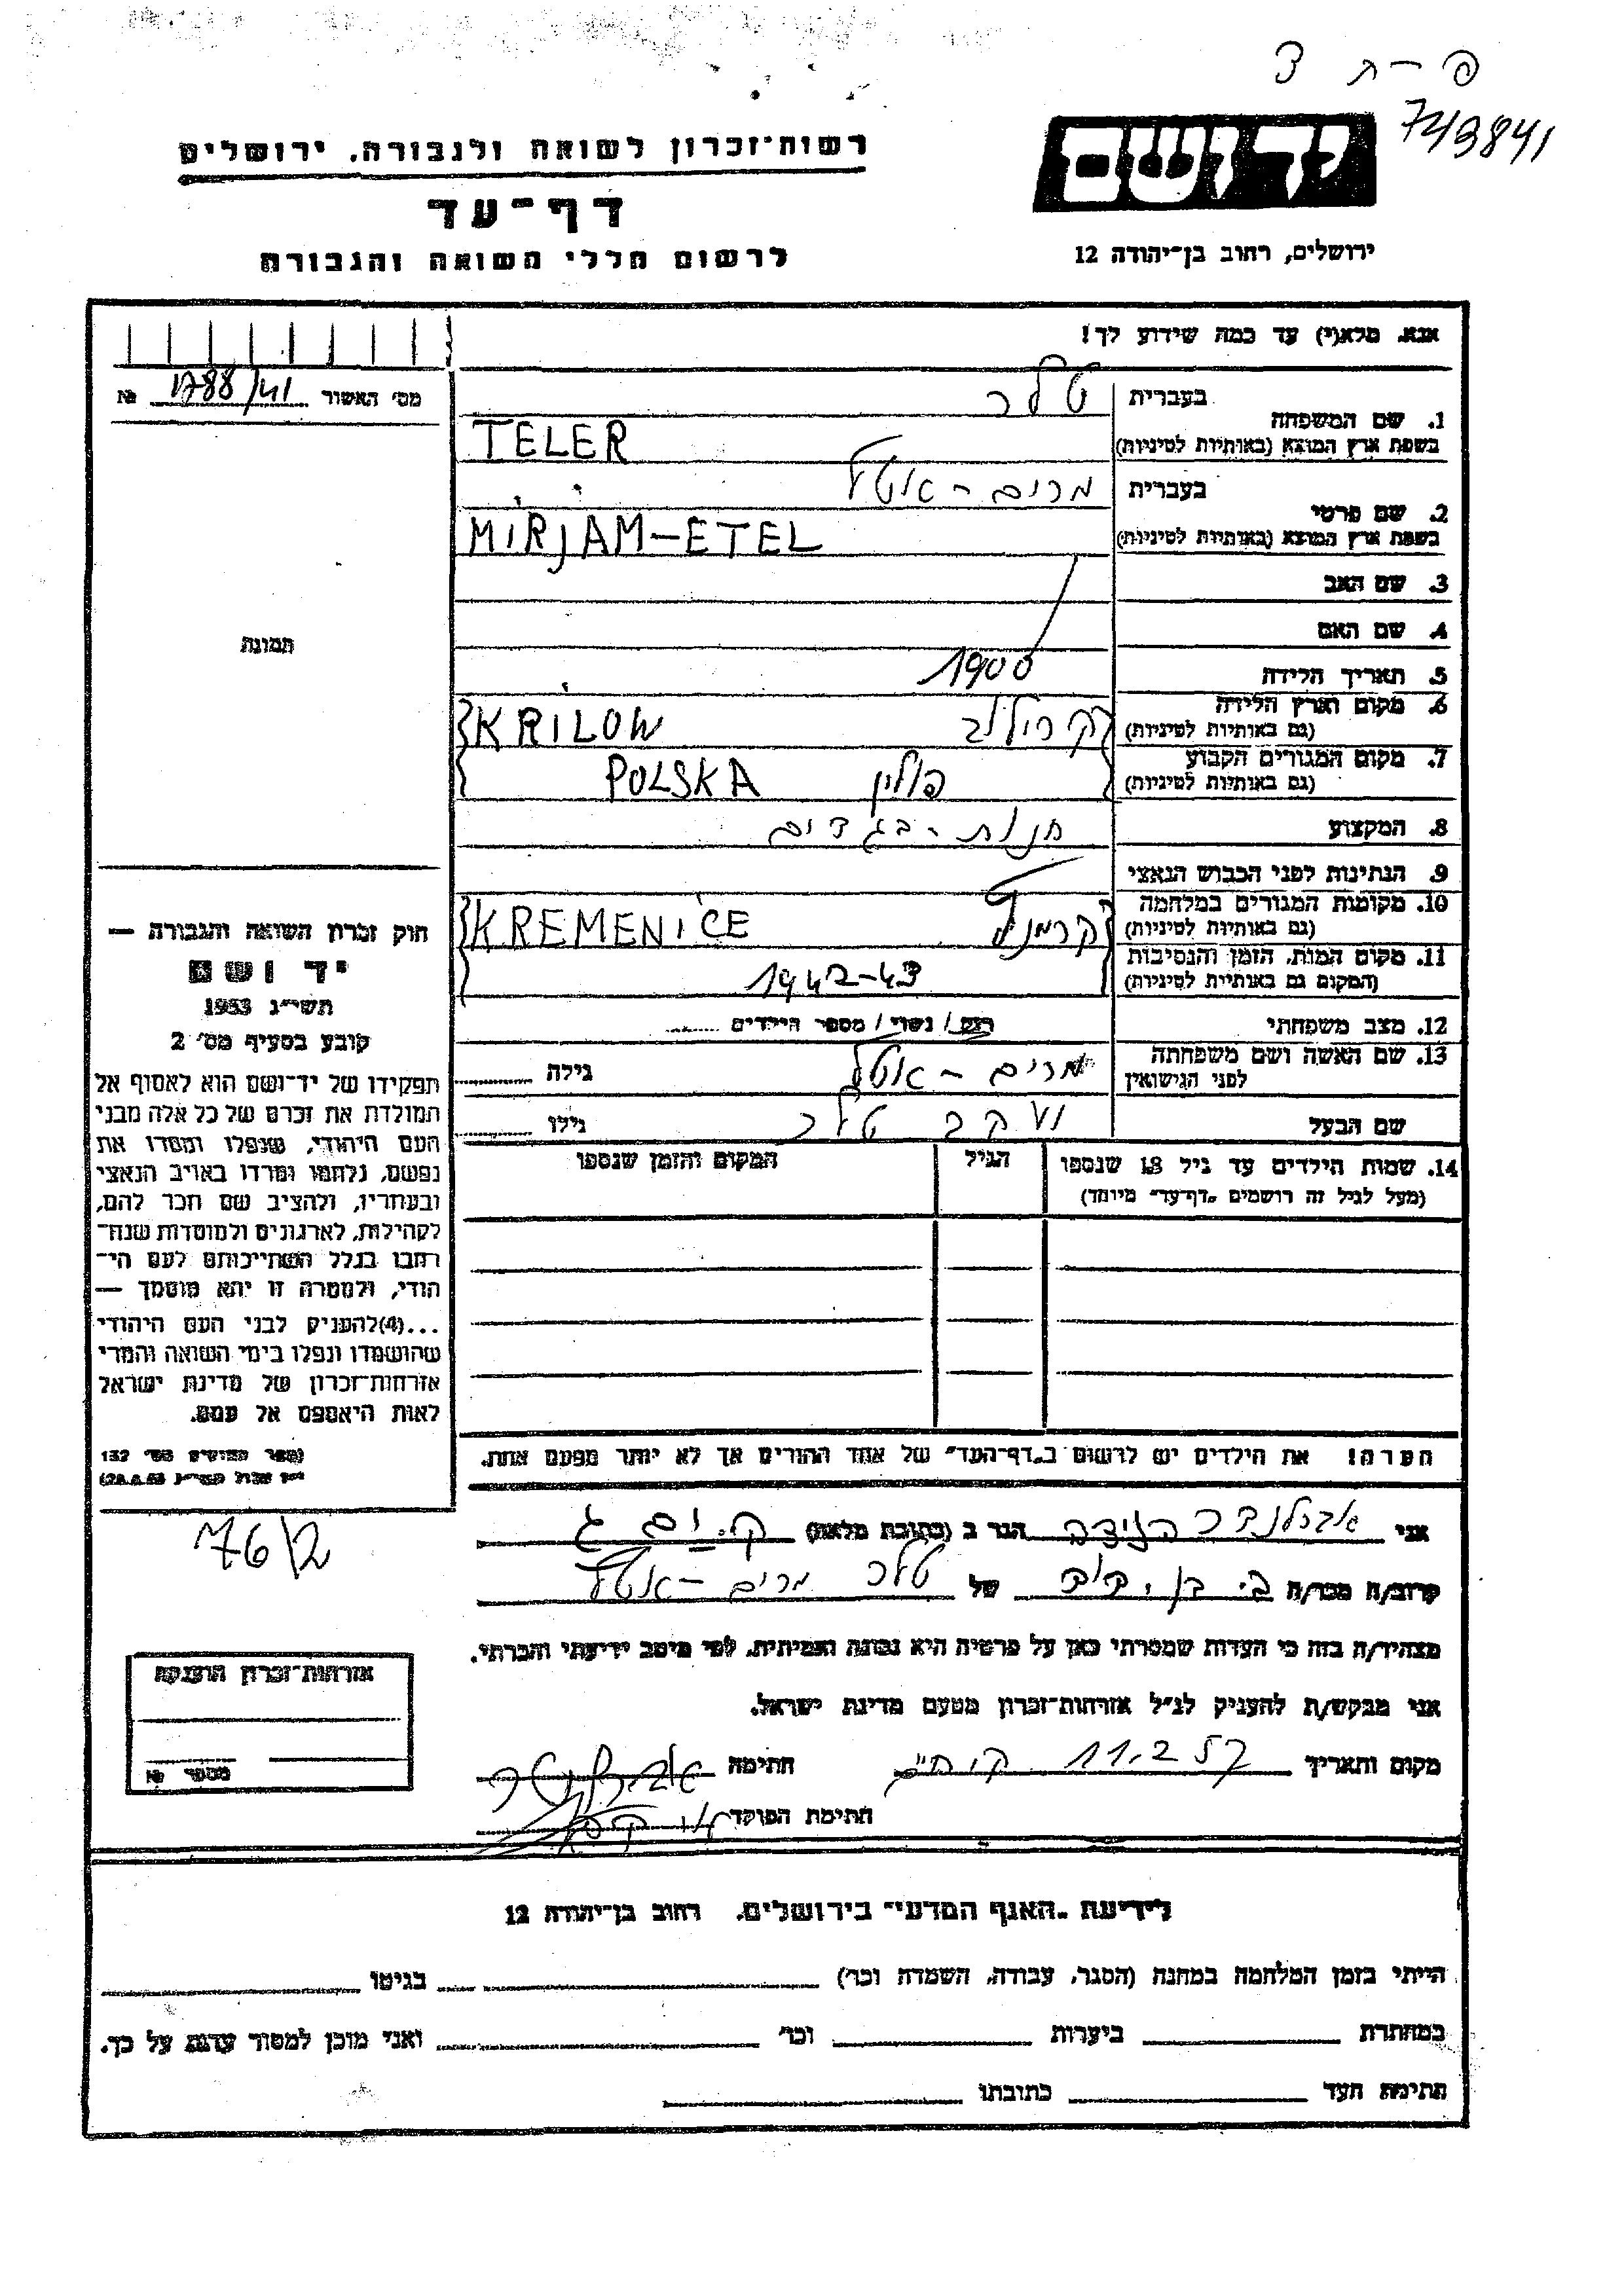 פ-ת ד
743841
יד ושם
ירושלים, רחוב בן־יהודה 12
רשות־זכרון לשואה ולגבורה, ירושלים
דף־עד
לרשום חללי השואה והגבורה
אנא, מלא(י) עד כמה שידוע לך!
מס' האשור 1788/41 №
תמונה
1. שם המשפחה
בעברית טלר
בשפת ארץ המוצא (באותיות לטיניות) TELER
2. שם פרטי
בעברית מרים - אטל
בשפת ארץ המוצא (באותיות לטיניות) MIRJAM-ETEL
3. שם האב
4. שם האם
5. תאריך הלידה 1900
6. מקום וארץ הלידה
(גם באותיות לטיניות) קרילוב KRILOW
7. מקום המגורים הקבוע
(גם באותיות לטיניות) פולין POLSKA
8. המקצוע חנות - בגדים
9. הנתינות לפני הכבוש הנאצי
10. מקומות המגורים במלחמה
(גם באותיות לטיניות) KREMENICE
11. מקום המות, הזמן והנסיבות
(המקום גם באותיות לטיניות) 1942-43
12. מצב משפחתי רווק / נשוי / מספר הילדים
13. שם האשה ושם משפחתה
לפני הנישואין מרים - אטל גילה
שם הבעל יעקב טלר גילו
14. שמות הילדים עד גיל 18 שנספו הגיל המקום והזמן שנספו
(מעל לגיל זה רושמים "דף־עד" מיוחד)
הערה! את הילדים יש לרשום ב"דף־העד" של אחד ההורים אך לא יותר מפעם אחת.
חוק זכרון השואה והגבורה —
יד ושם
תשי"ג 1953
קובע בסעיף מס' 2
תפקידו של יד־ושם הוא לאסוף אל
המולדת את זכרם של כל אלה מבני
העם היהודי, שנפלו ומסרו את
נפשם, נלחמו ומרדו באויב הנאצי
ובעוזריו, ולהציב שם וזכר להם,
לקהילות, לארגונים ולמוסדות שנח־
רבו בגלל השתייכותם לעם הי־
הודי, ולמטרה זו יהא מוסמך —
...(4) להעניק לבני העם היהודי
שהושמדו ונפלו בימי השואה והמרי
אזרחות־זכרון של מדינת ישראל
לאות היאספם אל עמם.
(ספר החוקים מס' 132
76/2
אני הגר ב (כתובת מלאה) ק. ים ג
קרוב/ה מכר/ה של טלר מרים - אטל
מצהיר/ה בזה כי העדות שמסרתי כאן על פרטיה היא נכונה ואמיתית, לפי מיטב ידיעתי והכרתי.
אני מבקש/ת להעניק לנ"ל אזרחות־זכרון מטעם מדינת ישראל.
מקום ותאריך 11.2.57 חתימה
חתימת הפוקד
אזרחות־זכרון הוענקה
מספר №
לידיעת "האגף המדעי" בירושלים, רחוב בן־יהודה 12
הייתי בזמן המלחמה במחנה (הסגר, עבודה, השמדה וכו') בגיטו
במחתרת ביערות וכו' ואני מוכן למסור עדות על כך.
חתימת העד כתובתו